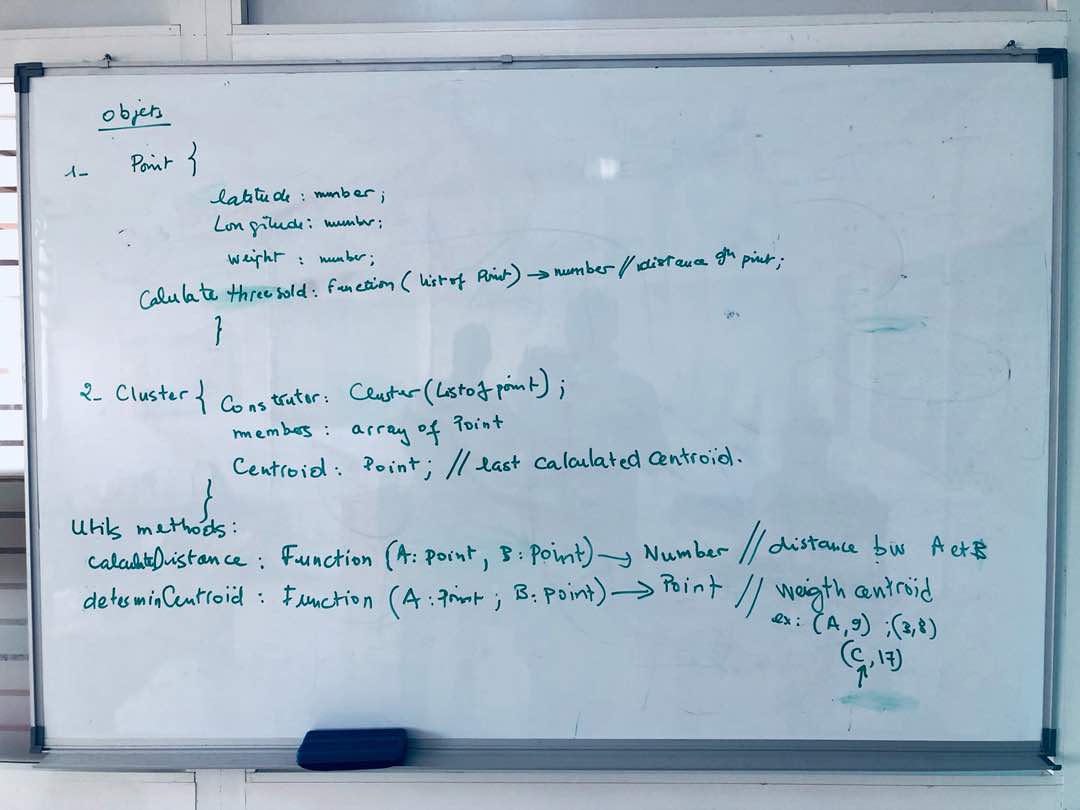 objets
1- Point {
latitude : number ;
Longitude : number ;
weight : number ;
Calulate threesold : Function ( list of Point) → number // distance point ;
}
2- Cluster { Construtor : Cluster (List of point) ;
members : array of Point
Centroid : Point ; // last calculated centroid.
}
Utils methods :
calculateDistance : Function (A : point, B : point) → Number // distance bw A et B
determinCentroid : Function (A : Point ; B : point) → Point // Weigth centroïd
ex : (A, 9) ; (B, 8)
(C, 17)
↑